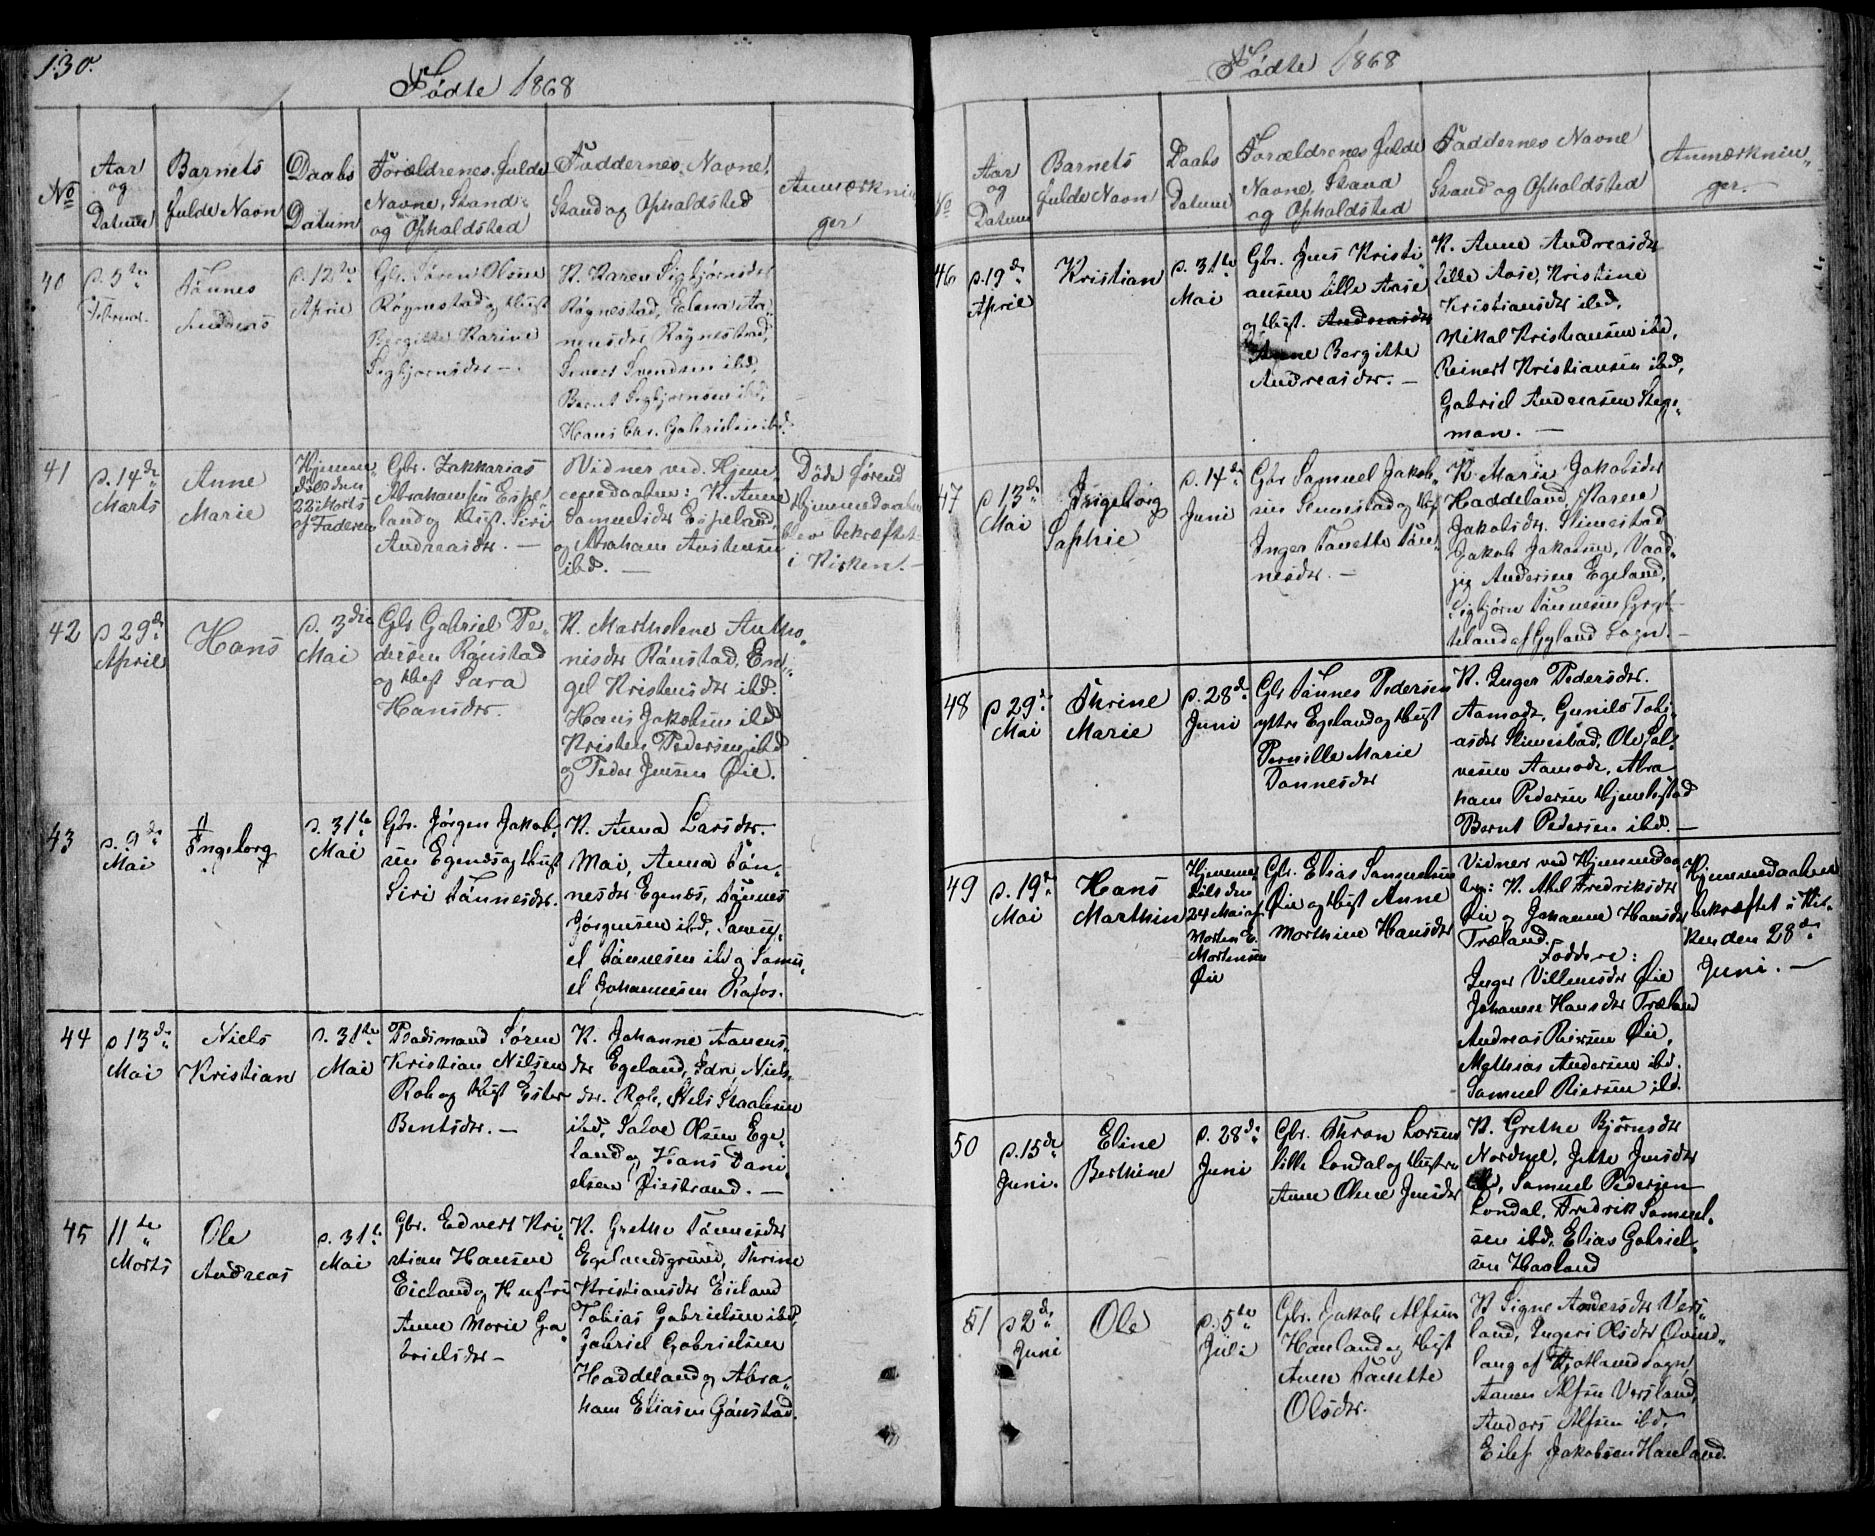 130.
Födte 1868
No
Aar og Datum
Barnets fulde Navn
Daabs Datum
Forældrenes fulde Navne, Stand og Opholdsted
Faddernes Navne, Stand og Opholdsted
Anmærkninger
40
d. 5te Februar.
Tönnes Andreas
d. 12te April
Gbr. Sören Olsen
Røynestad og Hust
Bergitte Karine
Sigbjørnsdr. —
K. Karen Sigbjørnsdr
Røynestad, Elena Aa„
nensdr Røynestad,
Sivert Svendsen ibd,
Bernt Sigbjørnsen ibd,
Hans Chr. Gabrielsen ibd.
41
d. 14de Marts
Anne Marie
Hjemme
døbt den
22 Marts
af Faderen
Gbr. Zakkarias
Abrahamsen Espe„
land og Hust. Siri
Andreasdr. —
Vidner ved Hjem„
medaaben: K. Anne
Samuelsdr Espeland,
og Abraham Austensen
ibd. —
Döde førend
Hjemmedaaben
blev bekræftet
i Kirken. —
42
d 29de April
Hans
d. 3die Mai
Gbr Gabriel Pe„
dersen Rönstad
og Hust Sara
Hansdr.
K. Marthelene Antho„
nisdr Rönstad, En„
gel Kristensdr ibd.
Hans Jakobsen ibd
Kristen Pedersen ibd
og Peder Jensen Öie.
43
d. 9de Mai
Ingeborg
d. 31te Mai
Gbr. Jörgen Jakob„
sen Egenæs og Hust
Siri Tönnesdr.
K. Anna Larsdr.
Moi, Anna Tön„
nesdr Egenæs, Tönnes
Jörgensen ibd, Samu„
el Tönnesen ibd og Samu„
el Johannesen Rafos.
44
d 13de Mai
Niels Kristian
d. 31te Mai
Baadsmand Sören
Kristian Nilsen
Rob og Hust Ester
Bentsdr. —
K. Johanne Aanens„
dr Egeland, Niels„
dr. Rob, Niels Staalesen
ibd, Salve Olsen Ege„
land og Hans Dani„
elsen Öiestrand. —
45
11te Marts
Ole Andreas
d. 31te Mai
Gbr. Edvert Kri„
stian Hansen
Eieland og Hustru
Anne Marie Ga„
brielsdr —
K. Grethe Tönnesdr
Egelandsgrund, Thrine
Kristiansdr Eieland
Tobias Gabrielsen ibd,
Gabriel Gabrielsen
Haddeland og Abra„
ham Eliasen Gjönstad.
Födte 1868
No
Aar og Datum
Barnets fulde Navn
Daabs Datum
Forældrenes fulde Navne, Stand og Opholdsted
Faddernes Navne Stand og Opholdsted
Anmærknin„ ger.
46
d. 19de April
Kristian
d. 31te Mai
Gbr. Jens Kristi„
ansen lille Aase
og Hust. Andreasdr
Anne Bergitte
Andreasdr. —
K. Anne Andreasdr
lille Aase, Kristine
Kristiansdr ibd,
Mikal Kristiansen ibd,
Reinert Kristiansen ibd,
Gabriel Andreasen Stege„
mon. —
47
d 13de Mai
Ingeborg Saphie
d. 14de Juni
Gbr Samuel Jakob„
sen Slimestad og Hust
Inger Tanette Tön„
nesdr. —
K. Maria Jakobsdr
Haddeland, Karen
Jakobsdr. Slimestad
Jakob Jakobsen, Vaad„
jeg Andersen Egeland,
Sigbjörn Tönnesen
af Gyland Sogn. —
48
d 29de Mai
Thrine Marie
d. 28de Juni
Gbr Tönnes Pedersen
ytre Egeland og Hust
Pernille Marie
Tonnesdr
K. Inger Pedersdr.
Aamodt, Gunild Tobi„
asdr Slimestad, Ole Sal„
vesen Aamodt, Abra
ham Pedersen
Bernt Pedersen ibd. —
49
d. 19de Mai
Hans Marthin
Hjemme
döbt den
24 Mai af
Morten E.
Mortensen
Öie
Gbr. Elias Samuelsen
Öie og Hust Anne
Morthine Hansdr
Vidner ved Hjemmedaa„
ben: K. Abel Fredriksdr
Öie og Johanne Hansdr
Træland.
Faddere:
Inger Villumsdr Öie
Johanne Hansdr Træland
Andreas Reiersen Öie,
Mathias Andersen ibd.
Samuel Reiersen ibd.
Hjemmedaaben
bekræftet i Kir„
ken den 28de
Juni. —
50
d. 15de Juni.
Eline Berthine
d. 28de Juni
Gbr. Thron Larsen
lille Londal og Hustru
Anne Oline Jensdr
K. Grethe Bjørnsdr
Nordmel, Jette Jensdr
Samuel Pedersen
Londal, Fredrik Samuel„
sen ibd. Elias Gabriel„
sen Haaland
51
d 2de Juni
Ole
d. 5te Juli
Gbr. Jakob Alfsen
Hanland og Hust
Anne Tanette
Olsdr.
K Signe Andersdr Vers„
land, Ingeri Olsdr Övind„
lang af Fjotland Sogn
Aanen Alfsen Versland,
Anders Alfsen ibd.
Eilef Jakobsen Hanland.